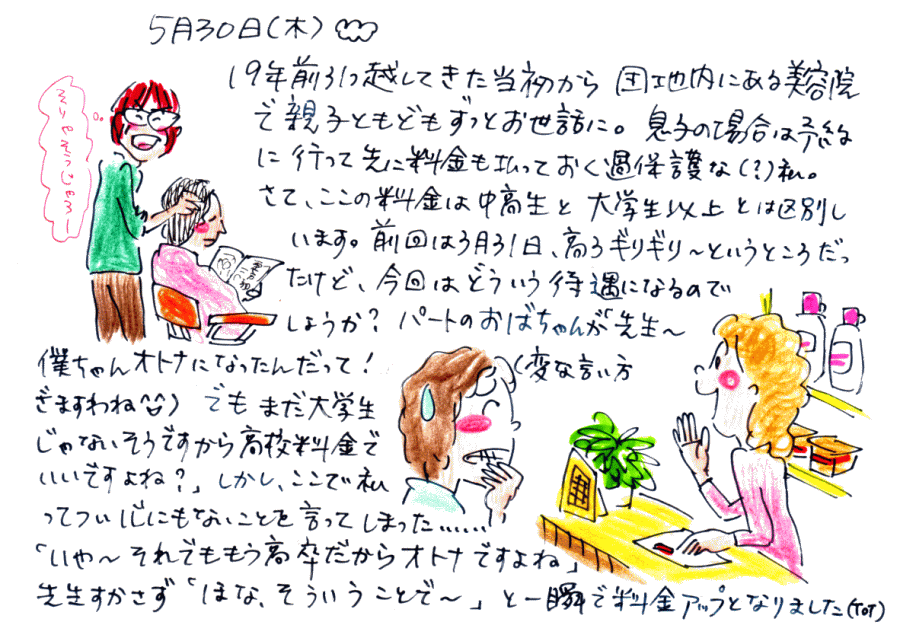 5月30日(木)
19年前引っ越してきた当初から 団地内にある美容院
で親子ともどもずっとお世話に。息子の場合は予約
に行って先に料金も払っておく過保護な(?)私。
さて、ここの料金は中高生と大学生以上とは区別し
います。前回は3月31日、高3ギリギリ〜というところだっ
たけど、今回はどういう待遇になるので
しょうか? パートのおばちゃんが「先生〜
僕ちゃんオトナになったんだって!
(変な言い方
ぎますわね^^) でもまだ大学生
じゃないそうですから高校料金で
いいですよね?」しかし、ここで私
ってつい心にもないことを言ってしまった……
「いや〜それでももう高卒だからオトナですよね」
先生すかさず「ほな、そういうことで〜」と一瞬で料金アップとなりました(ToT)
そりゃそうじゃろ〜